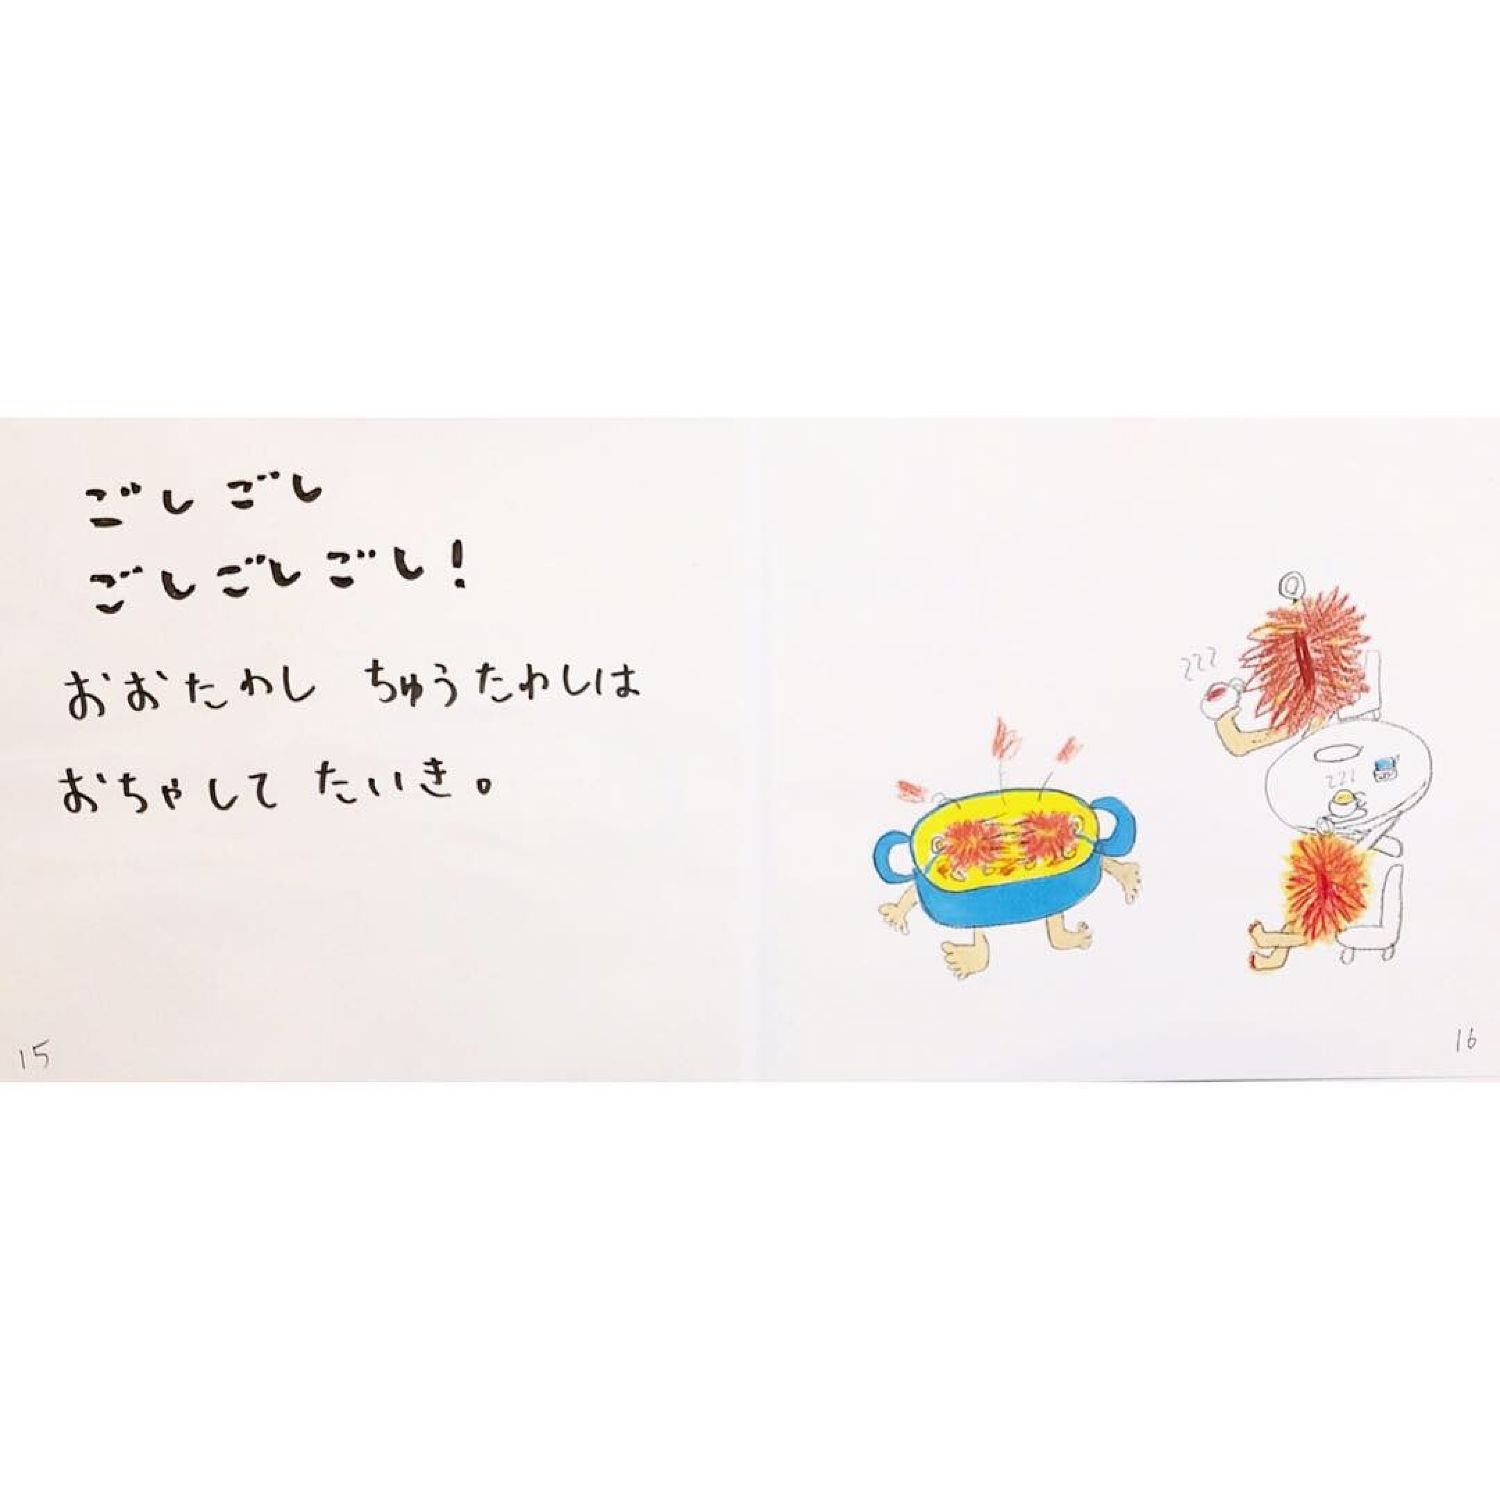 ごしごし
ごしごしごし!
おおたわし ちゅうたわしは
おちゃして たいき。
15
16